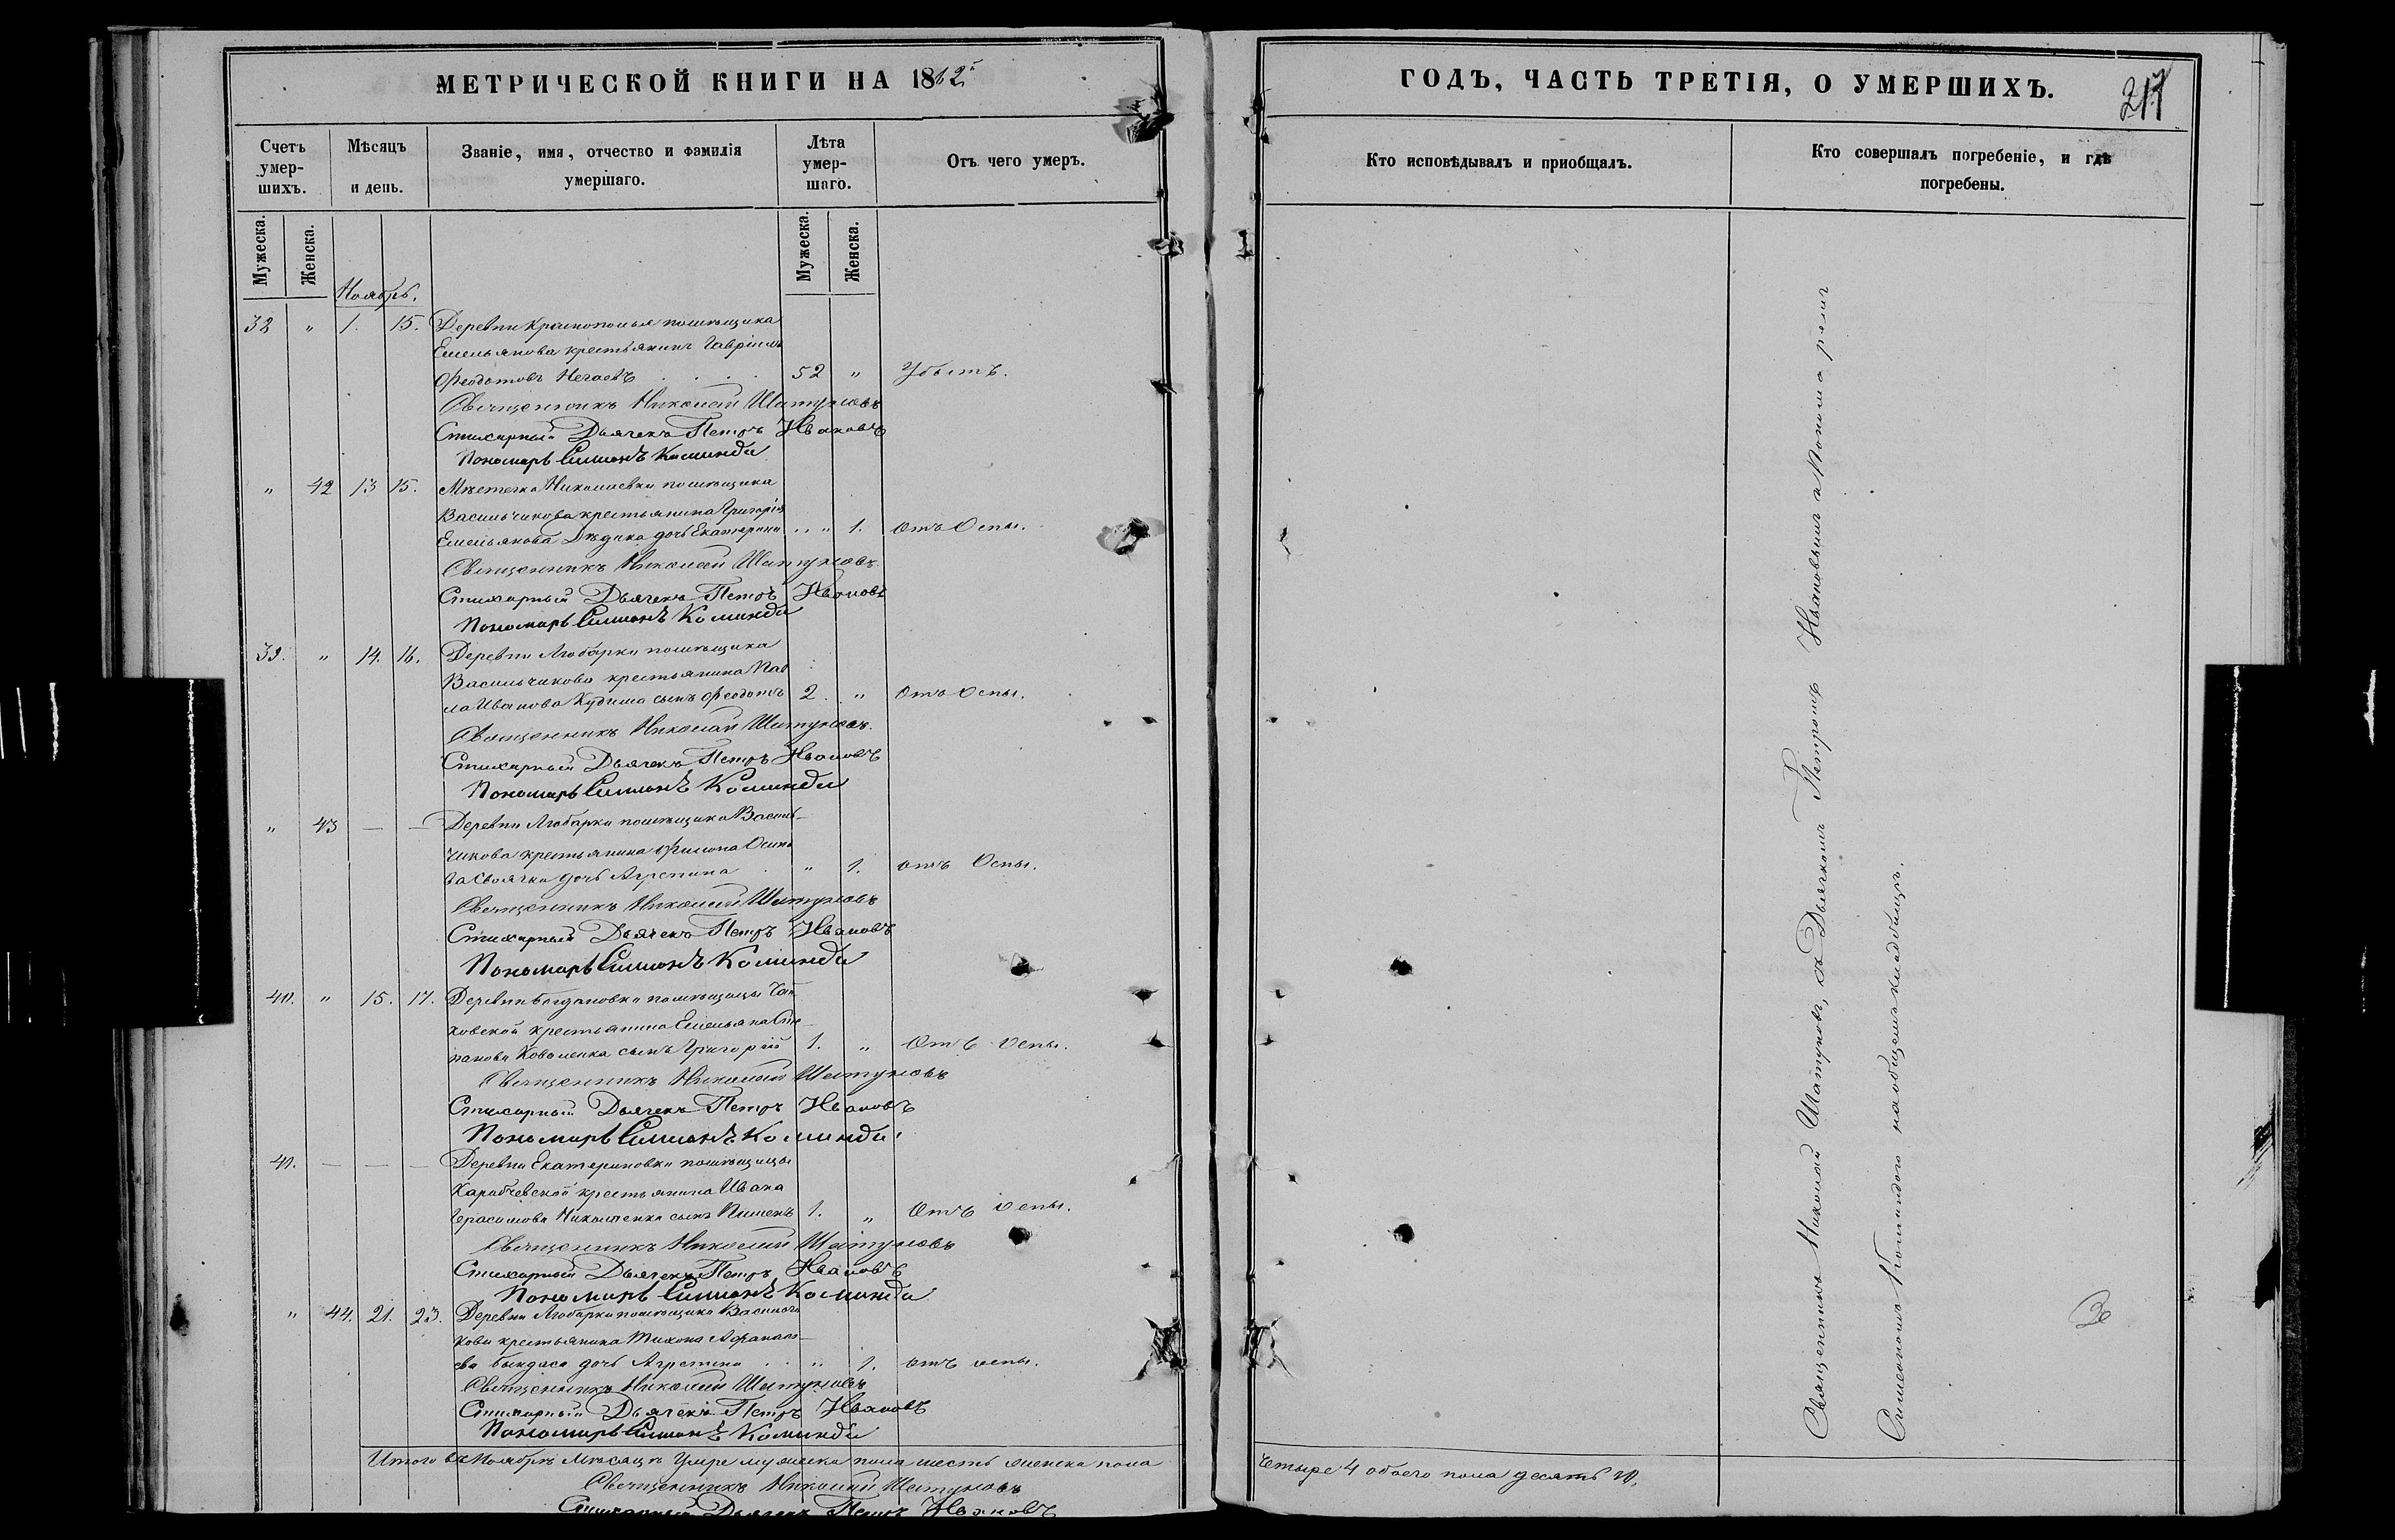 МЕТРИЧЕСКОЙ КНИГИ НА 1862й
Счетъ умер-шихъ.
Мѣсяцъ и день.
Званіе, имя, отчество и фамилія умершаго.
Лѣта умер-шаго.
Отъ чего умеръ.
Мужеска.
Женска.
Мужеска.
Женска.
Ноябрь.
32 " 1. 15. Деревни Краснополья помѣщика
Емельянова крестьянинъ Гавріилъ
Ѳеодотовъ Нечаевъ 52 "
Священникъ Николай Шатуновъ
Стихарный Дьячекъ Петръ Ивановъ
Пономарь Симионъ Коминди
" 42 13 15. Мѣстечка Николаевки помѣщика
Васильчикова крестьянина Григорія
Емельянова дочь Екатерина " 1. отъ Оспы.
Священникъ Николай Шатуновъ
Стихарный Дьячекъ Петръ Ивановъ
Пономарь Симионъ Коминди
39. " 14. 16. Деревни Любарки помѣщика
Васильчикова крестьянина Пав
ла Иванова Кудина сынъ Ѳеодотъ 2. " Отъ Оспы.
Священникъ Николай Шатуновъ.
Стихарный Дьячекъ Петръ Ивановъ
Пономарь Симионъ Коминди
" 43 — — Деревни Любарки помѣщика Василь-
чикова крестьянина Филипа Осипо
ва дочь Агрепина " 1. отъ Оспы.
Священникъ Николай Шатуновъ
Стихарный Дьячекъ Петръ Ивановъ
Пономарь Симионъ Коминди
40. " 15. 17. Деревни Богдановки помѣщицы
крестьянина Емельяна Сте
панова Коваленка сынъ Григорій 1. " Отъ оспы.
Священникъ Николай Шатуновъ
Стихарный Дьячекъ Петръ Ивановъ
Пономарь Симионъ Коминди
41. — — — Деревни Екатериновки помѣщицы
Харабчевской крестьянина Ивана
Герасимова сынъ Пименъ 1. " Отъ оспы.
Священникъ Николай Шатуновъ
Стихарный Дьячекъ Петръ Ивановъ
Пономарь Симионъ Коминди
" 44. 21. 23. Деревни Любарки помѣщика Васильчи
кова крестьянина Тихона Афанась-
ева дочь Агрепина " 1. отъ оспы.
Священникъ Николай Шатуновъ
Стихарный Дьячекъ Петръ Ивановъ
Пономарь Симионъ Коминди
Итого въ Ноябрѣ Мѣсяцѣ Умре мужеска пола шесть женска пола
Священникъ Николай Шатуновъ
Стихарный Дьячекъ Петръ Ивановъ
ГОДЪ, ЧАСТЬ ТРЕТІЯ, О УМЕРШИХЪ.
Кто исповѣдывалъ и приобщалъ.
Кто совершалъ погребеніе, и гдѣ погребены.
Священникъ Николай Шатуновъ, съ Дьячкомъ Петромъ Ивановымъ и Пономаремъ
Симеономъ на общемъ кладбищѣ.
четыре 4 обоего пола десять 10.